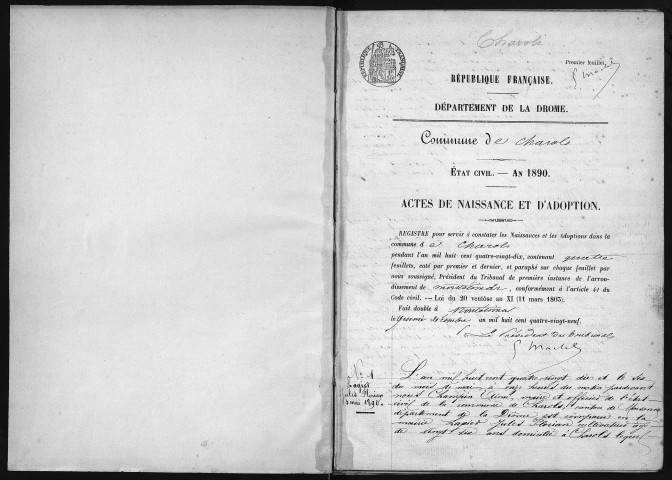 Charols
Premier feuillet,
RÉPUBLIQUE FRANÇAISE
RÉPUBLIQUE FRANÇAISE.
DÉPARTEMENT DE LA DROME.
Commune de Charols
ÉTAT CIVIL. — AN 1890.
ACTES DE NAISSANCE ET D'ADOPTION.
REGISTRE pour servir à constater les Naissances et les adoptions dans la
commune de Charols
pendant l'an mil huit cent quatre-vingt-dix, contenant quatre
feuillets, coté par premier et dernier, et paraphé sur chaque feuillet par
nous soussigné, Président du Tribunal de première instance de l'arron-
dissement de Montélimar, conformément à l'article 41 du
Code civil. — Loi du 20 ventôse an XI (11 mars 1803).
Fait double à Montélimar
le décembre an mil huit cent quatre-vingt-neuf.
Le Président du tribunal
N° 1
Jules Florian
mai 1890.
L'an mil huit cent quatre vingt dix et le six
du mois de mai à onze heures du matin pardevant
nous Champion maire et officier de l'état
civil de la commune de Charols, canton de
département de la Drôme est comparu en la
mairie Jules Florian cultivateur âgé
de vingt six ans domicilié à Charols lequel